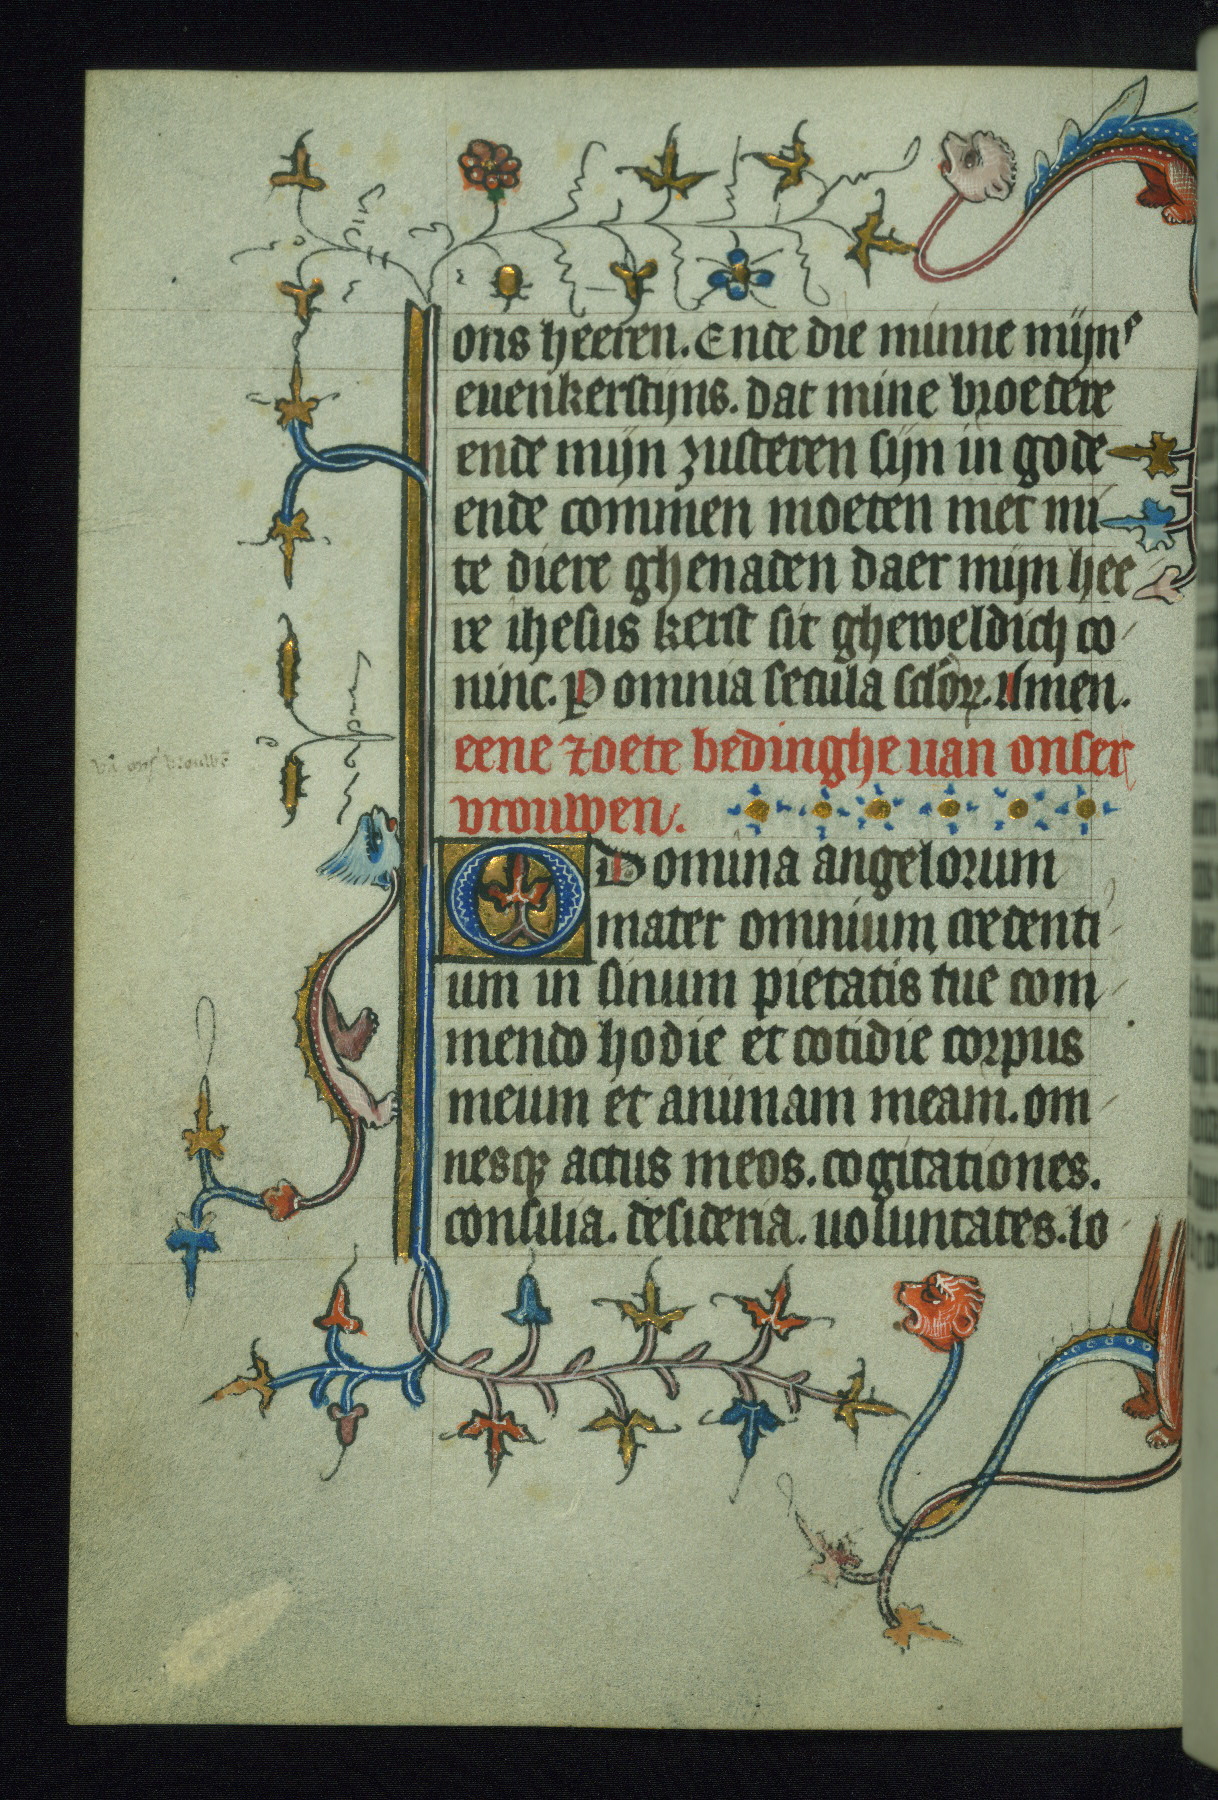 ons heeren. Ende die minne mijnˢ
euenkerstijns. dat mine broedere
ende mijn zusteren sijn in gode
ende commen moeten met mi
te diere ghenaden daer mijn hee
re ihesus kerst sit gheweldich co
ninc. P omnia secula sclor. Amen.
eene zoete bedinghe uan onser
vrouwen.
O Domina angelorum
mater omnium credenti
um in sinum pietatis tue com
mendo hodie et cotidie corpus
meum et animam meam. om
nesq; actus meos. cogitationes.
consilia. desideria. uoluntates. lo